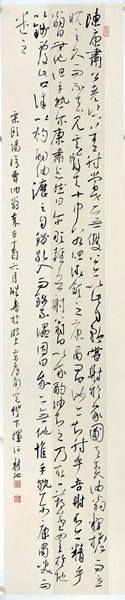 陳康肅公善射當世無雙公亦以此自矜嘗射於家圃有賣油翁釋擔而立
睨之久而不去見其發矢十中八九但微頷之康肅問曰汝亦知射乎吾射不亦精乎
翁曰無他但手熟爾康肅忿然曰爾安敢輕吾射翁曰以我酌油知之乃取一葫蘆置於地
以錢覆其口徐以杓酌油瀝之自錢孔入而錢不濕因曰我亦無他惟手熟爾康肅笑而
遣之
宋歐陽修賣油翁 丁酉六月